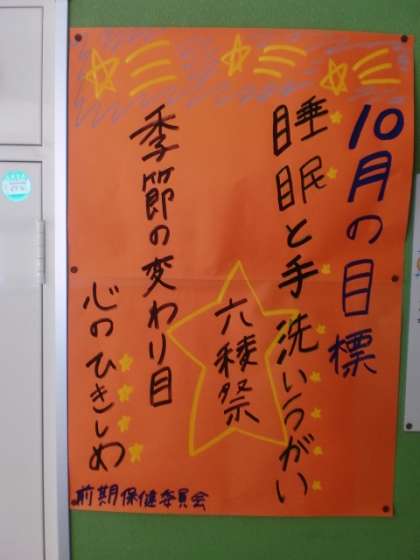 10月の目標
睡眠と手洗いうがい
六稜祭
季節の変わり目
心のひきしめ
前期保健委員会